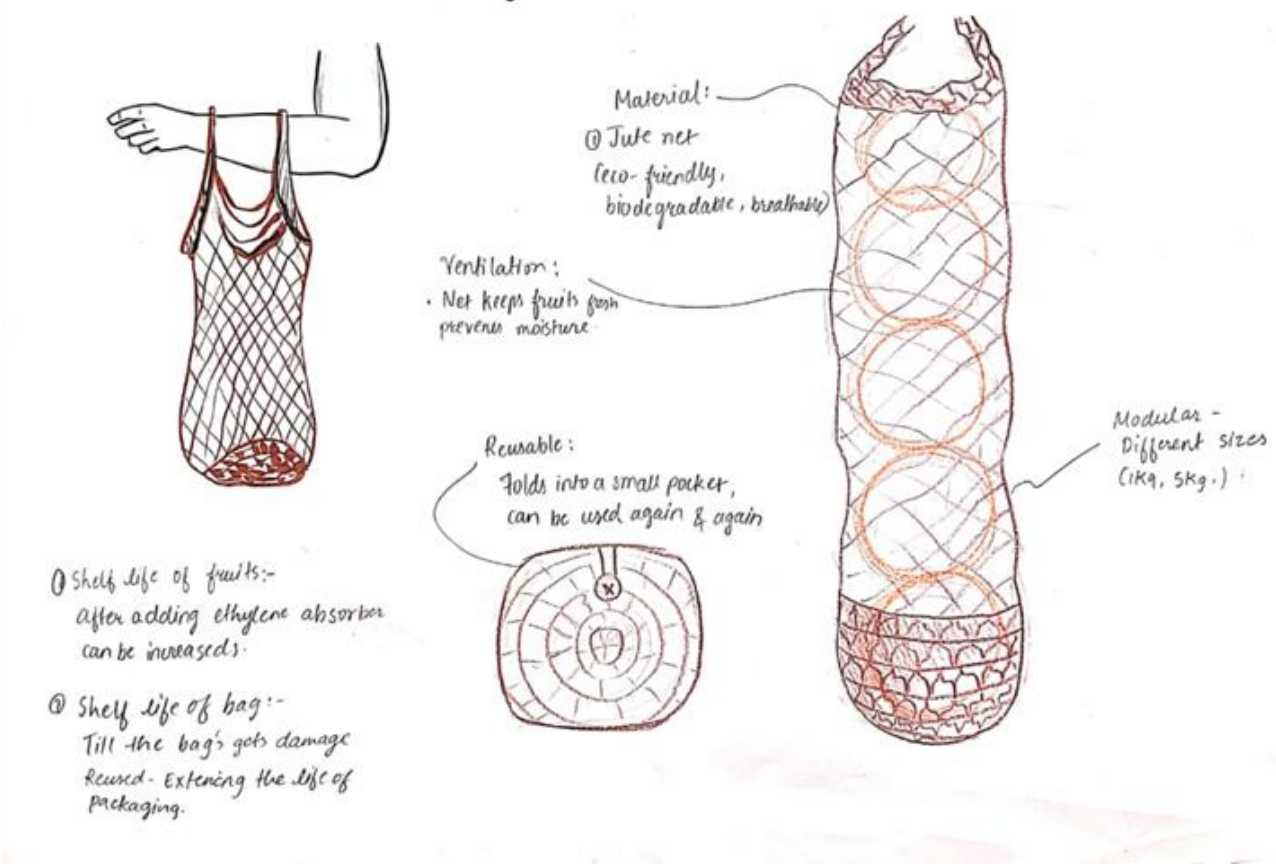 Material:
① Jute net
(eco-friendly,
biodegradable, breathable)
Ventilation:
• Net keeps fruits fresh
prevents moisture
Modular -
Different sizes
(1Kg, 5Kg.)
Reusable:
Folds into a small pocket,
can be used again & again
① Shelf life of fruits:-
after adding ethylene absorber
can be increaseds.
② Shelf life of bag:-
Till the bag's gets damage
Reused - Extening the life of
packaging.